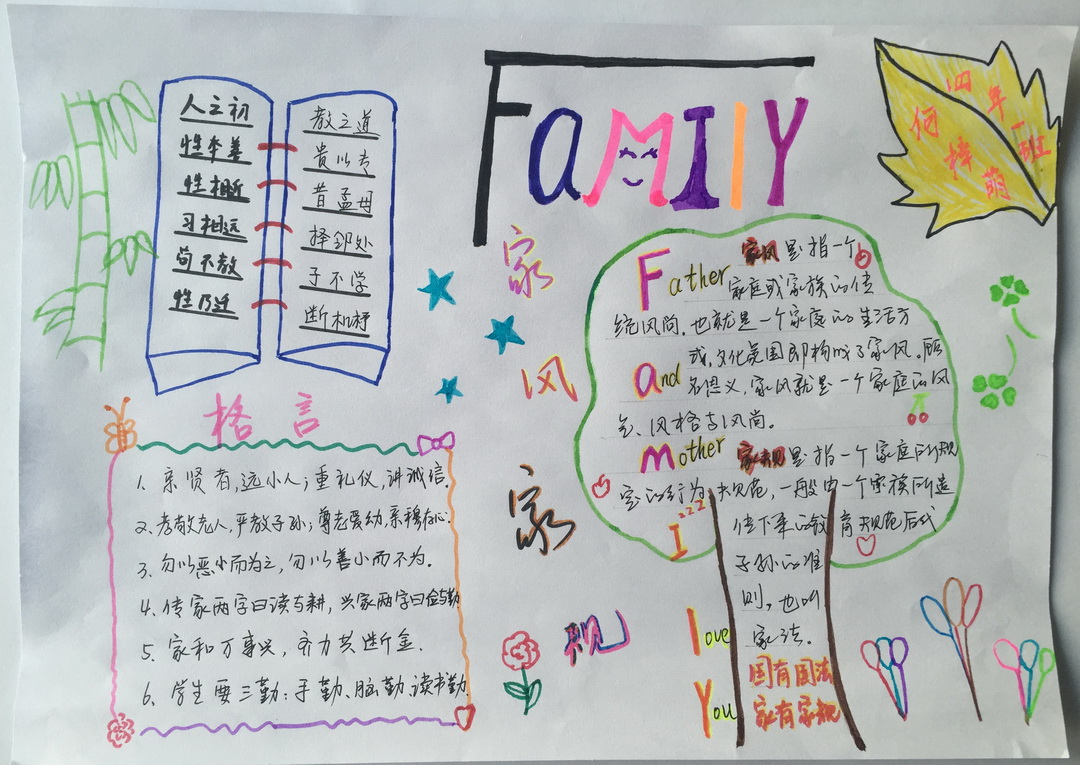 FAMIlY
四年一班
何梓萌
人之初
性本善
性相近
习相远
苟不教
性乃迁
教之道
贵以专
昔孟母
择邻处
子不学
断机杼
家
风
家
规
格言
1. 亲贤者,远小人;重礼仪,讲诚信.
2. 孝敬老人,严教子孙;尊老爱幼,亲穆存心.
3. 勿以恶小而为之,勿以善小而不为.
4. 传家两字曰读与耕,兴家两字曰俭与勤
5. 家和万事兴,齐力共断金.
6. 学生要三勤:手勤、脑勤、读书勤.
Father
and
Mother
I
love
You
家风是指一个
家庭或家族的传
统风尚.也就是一个家庭的生活方
式,文化氛围即构成了家风.顾
名思义,家风就是一个家庭的风
气、风格与风尚。
家规是指一个家庭所规
定的行为规范,一般由一个家族所遗
传下来的教育规范后代
子孙的准
则,也叫
家法.
国有国法
家有家规
zzz